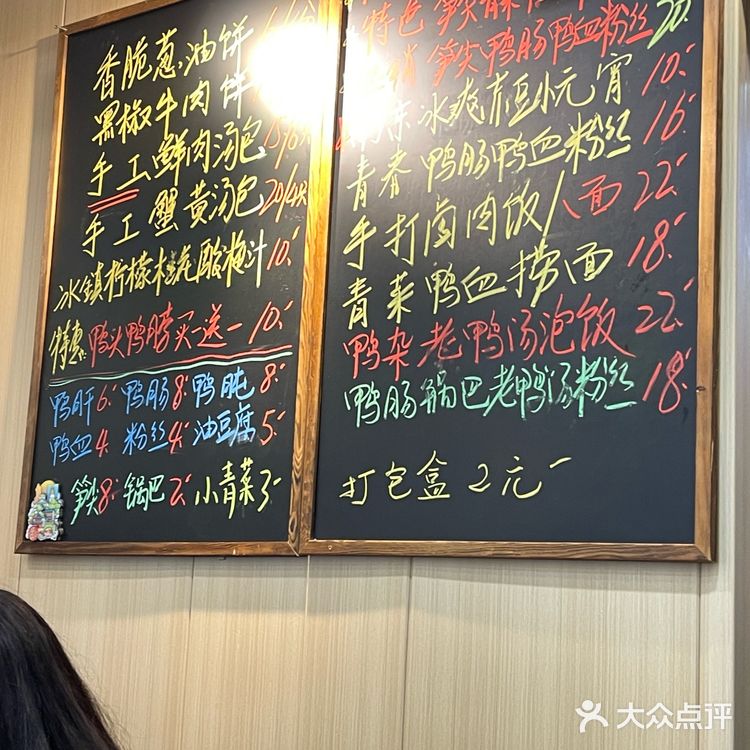 香脆葱油饼
黑椒牛肉饼
手工鲜肉汤包
手工蟹黄汤包 20/4只
冰镇柠檬桂花酸梅汁 10.
特惠 鸭头鸭膀买一送一 10.
鸭肝 6. 鸭肠 8. 鸭肫 8.
鸭血 4. 粉丝 4. 油豆腐 5.
笋尖 8. 锅巴 2. 小青菜 3.
特色 笋尖
笋尖鸭肠鸭血粉丝 20.
冰爽 小元宵 10.
青春 鸭肠鸭血粉丝 16.
手打卤肉饭/面 22.
青菜鸭血捞面 18.
鸭杂老鸭汤泡饭 22.
鸭肠锅巴老鸭汤粉丝 18.
打包盒 2元
大众点评